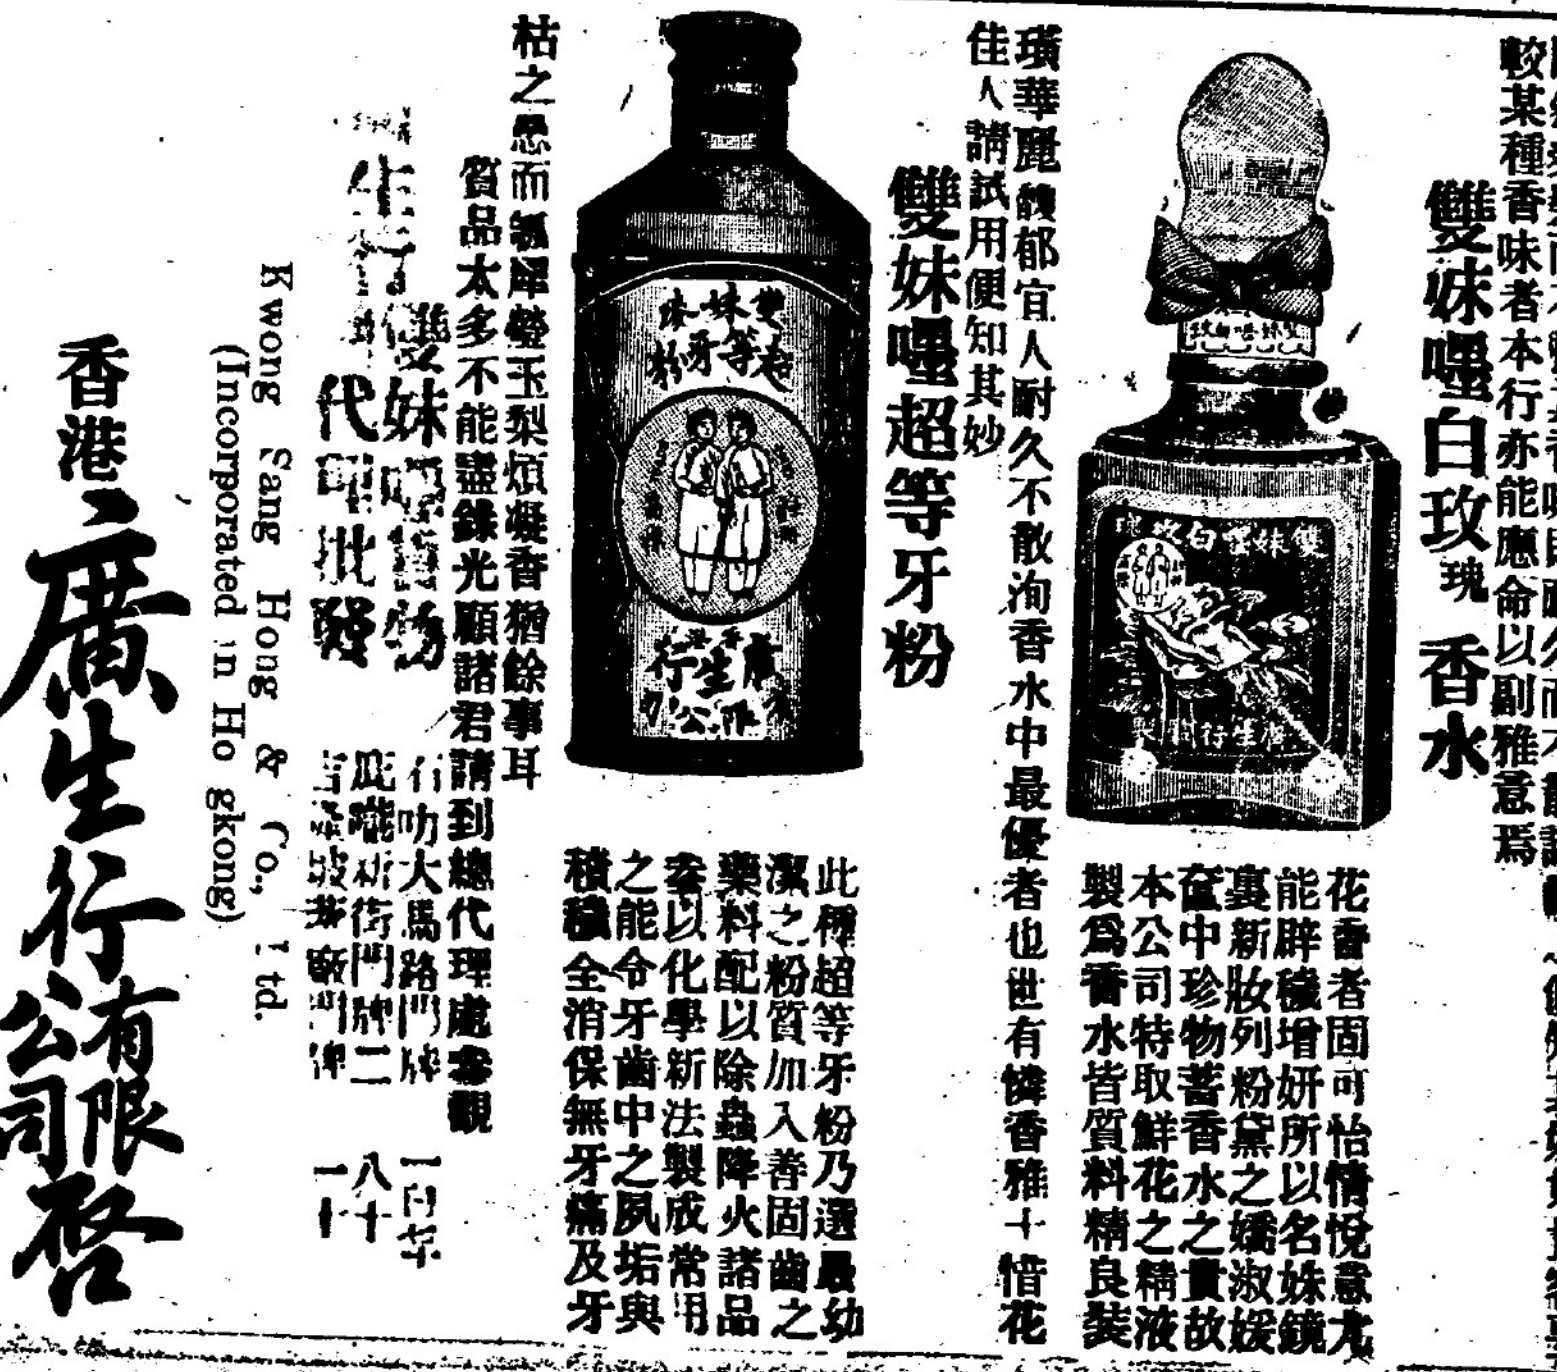 較某種香味者本行亦能應命以副雅意焉
雙妹嚜白玫瑰香水
花香者固可怡情悅意尤
能辟穢增妍所以名姝鏡
裏新妝列粉黛之嬌淑媛
奩中珍物蓄香水之貴故
本公司特取鮮花之精液
製爲香水皆質料精良裝
璜華麗馥郁宜人耐久不散洵香水中最優者也世有憐香雅士惜花
佳人請試用便知其妙
雙妹嚜超等牙粉
雙妹嚜
超等牙粉
香港
廣生行
有限公司
此種超等牙粉乃選最幼
潔之粉質加入善固齒之
藥料配以除蟲降火諸品
參以化學新法製成常用
之能令牙齒中之夙垢與
積穢全消保無牙痛及牙
枯之患而瓠犀瑩玉梨煩凝香猶餘事耳
質品太多不能盡錄光顧諸君請到總代理處參觀
雙妹嚜
代理批發
叻大馬路門牌
新街門牌二
八十
一十
Kwong Sang Hong & Co., Ltd.
(Incorporated in Ho gkong)
香港廣生行有限公司啓